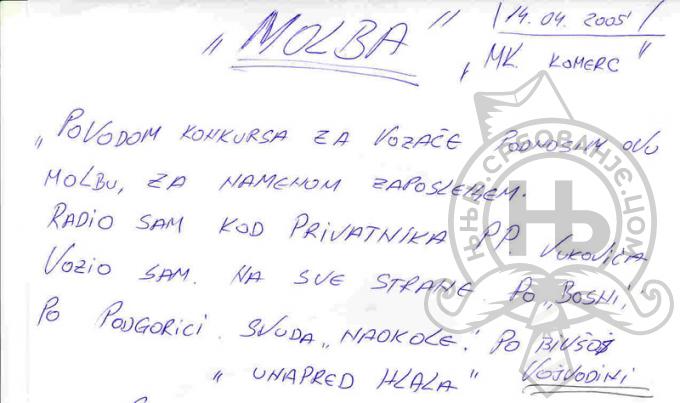 /14. 04. 2005/
„MOLBA"
„MK. KOMERC"
„POVODOM KONKURSA ZA VOZAČE PODNOSIM OVU
MOLBU, ZA NAMENOM ZAPOSLENJEM.
RADIO SAM KOD PRIVATNIKA PP. VUKOVIĆA
VOZIO SAM. NA SVE STRANE. PO „BOSNI,
PO PODGORICI. SVUDA „NAOKOLE." PO BIVŠOJ
„UNAPRED HLALA" VOJVODINI
ЊЊЊ.СРБОВАЊЕ.ЦОМ
Њ